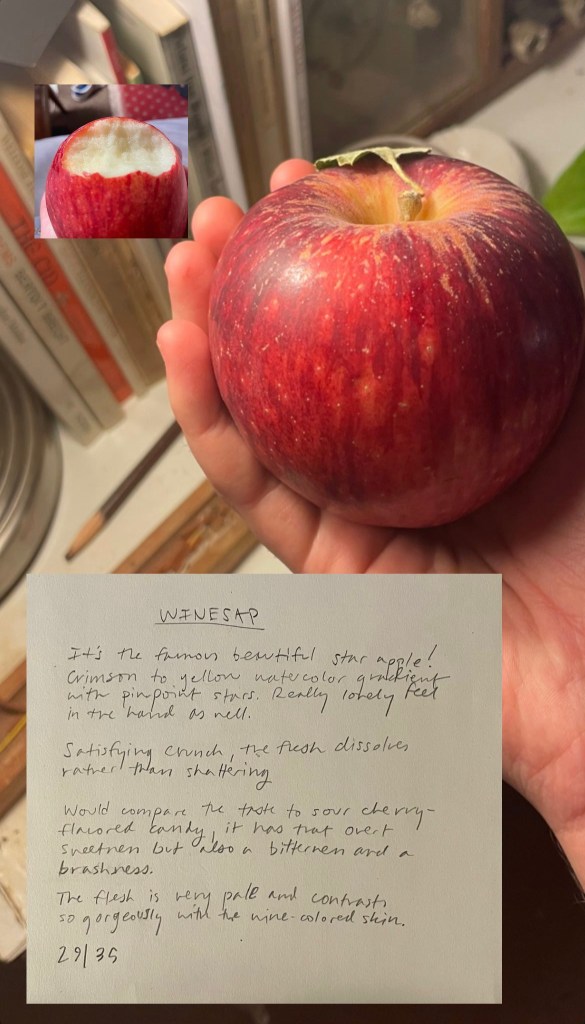 THE CID
BERTOLT BRECHT
WINESAP
It's the famous beautiful star apple!
Crimson to yellow watercolor gradient
with pinpoint stars. Really lovely feel
in the hand as well.
Satisfying crunch, the flesh dissolves
rather than shattering
Would compare the taste to sour cherry-
flavored candy, it has that overt
sweetness but also a bitterness and a
brashness.
The flesh is very pale and contrasts
so gorgeously with the wine-colored skin.
29/35